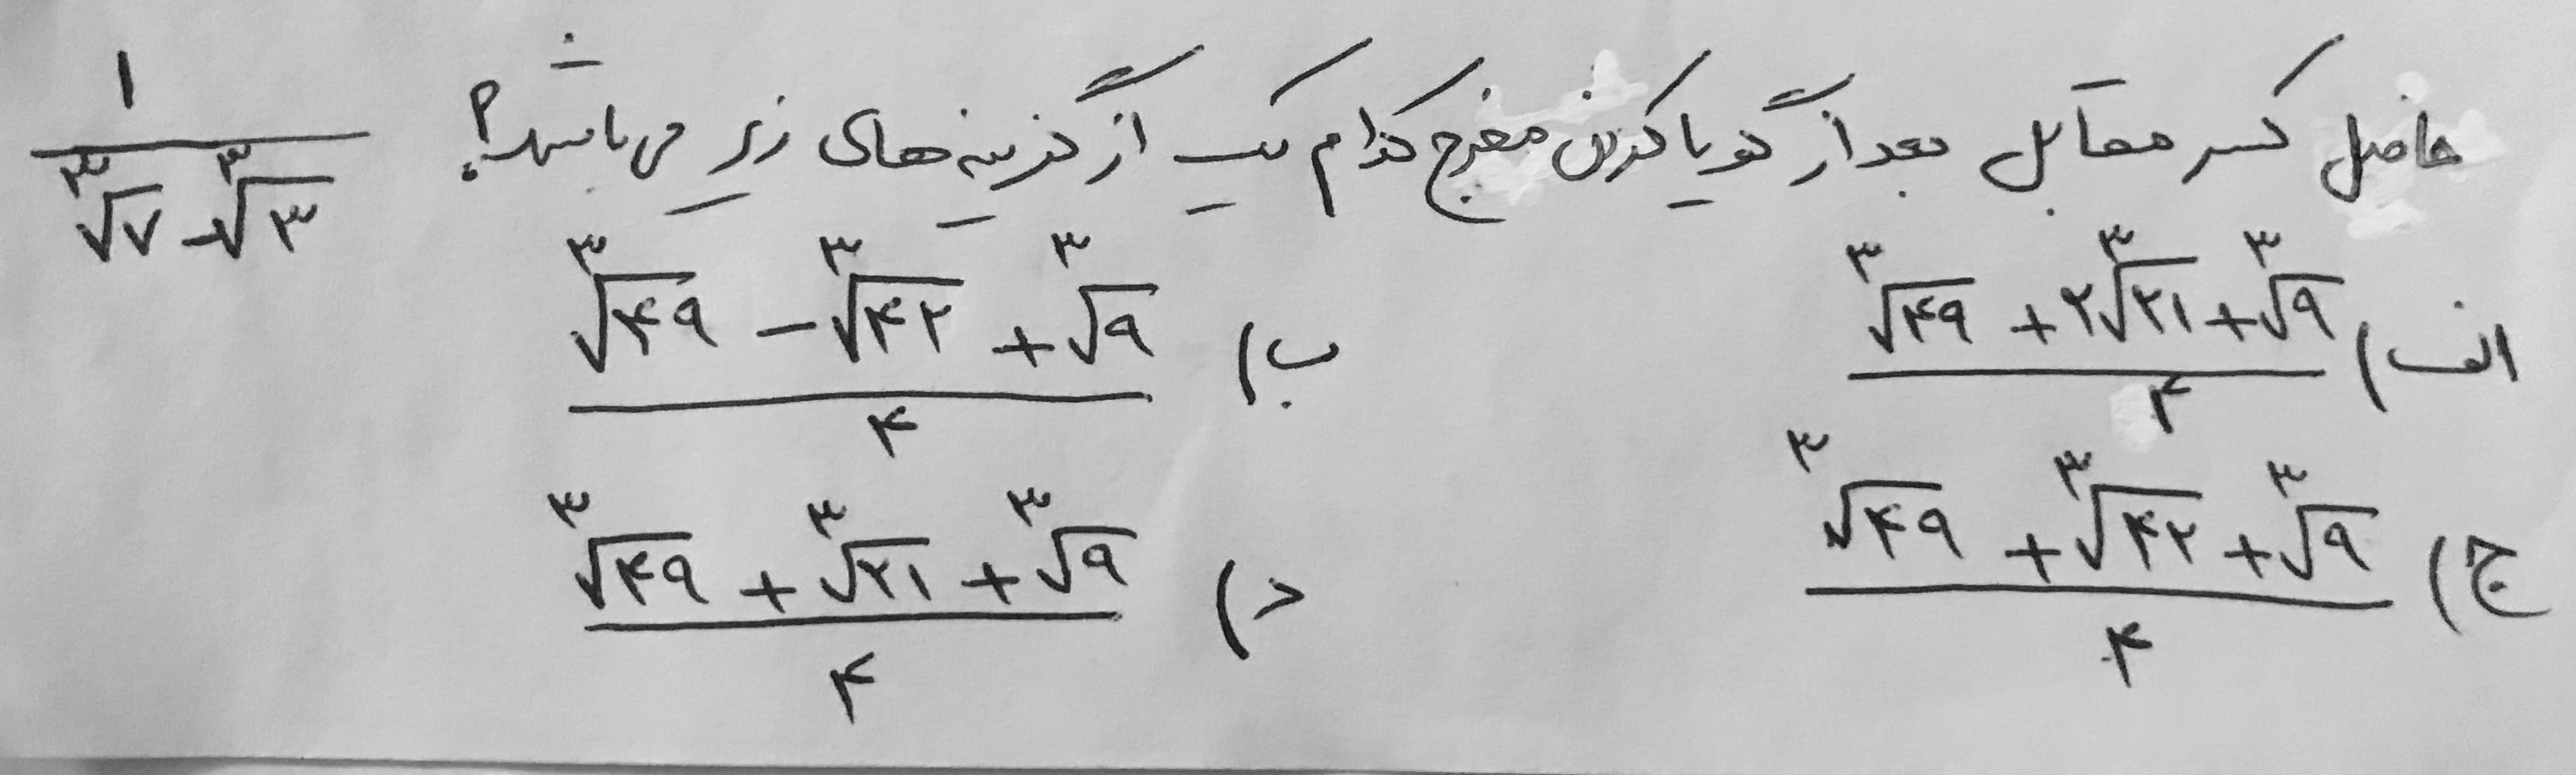 حاصل کسر مقابل بعد از گویا کردن مخرج کدام یک از گزینه های زیر می باشد؟ ۱ / (∛۷ - ∛۳)
الف) (∛۴۹ + ۲∛۲۱ + ∛۹) / ۴
ب) (∛۴۹ - ∛۴۲ + ∛۹) / ۴
ج) (∛۴۹ + ∛۴۲ + ∛۹) / ۴
د) (∛۴۹ + ∛۲۱ + ∛۹) / ۴